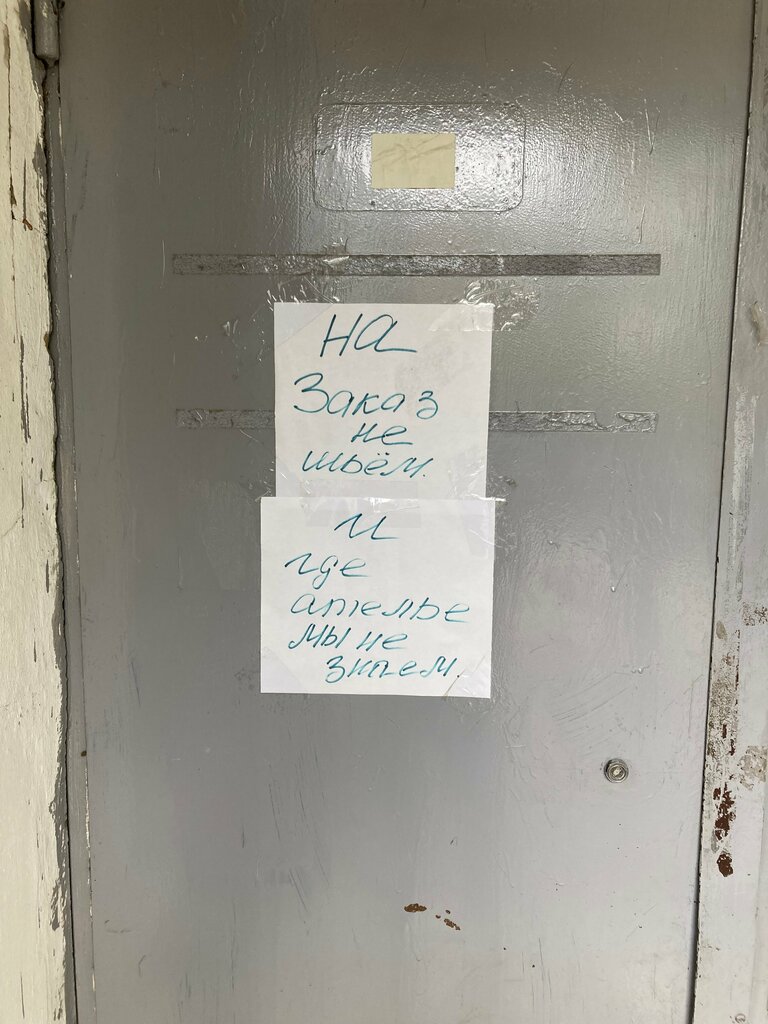 на
Заказ
не
шьём.
и
где
ателье
мы не
знаем.